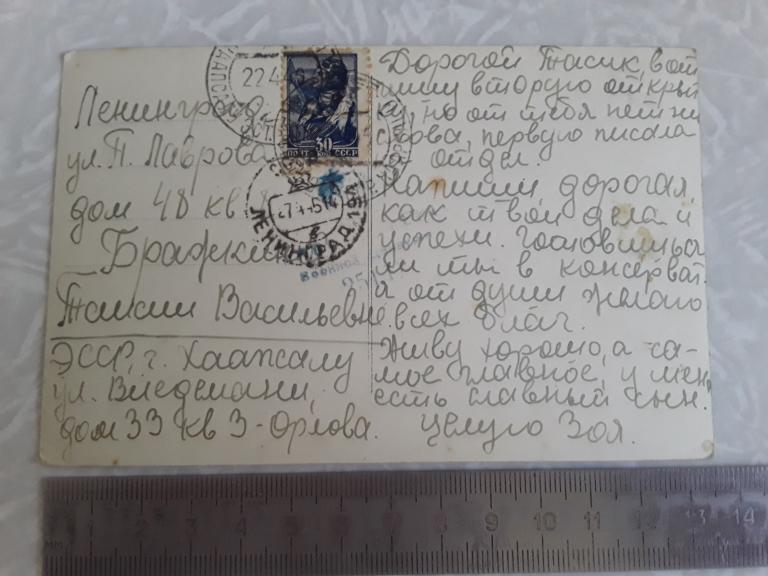 Ленинград
ул. П. Лаврова
дом 48 кв
Таисии Васильевне
ЭССР, г. Хаапсалу
ул. Видемани,
дом 33 кв 3 - Орлова.
Дорогой Тасик, вот
пишу вторую откры
ку, но от тебя нет ни
слова, первую писала
отдел.
Напиши дорогая
как твои дела и
успехи. Готовишься
ли ты в консерват.
а от души желаю
всех благ.
Живу хорошо, а са-
мое главное, у мен
есть славный сын.
Целую Зоя.
22 4
30
ПОЧТА СССР
ЛЕНИНГРАД
Военной
1 2 3 4 5 6 7 8 9 10 11 12 13 14